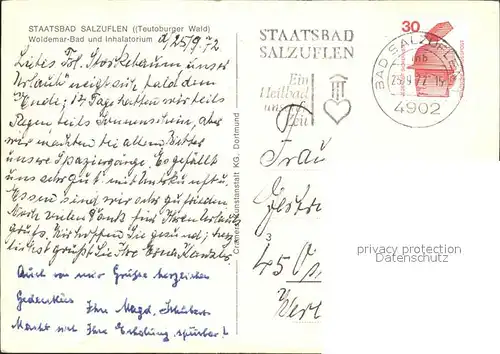 STAATSBAD SALZUFLEN ((Teutoburger Wald)
Woldemar-Bad und Inhalatorium
d. 25/9.72
Liebes Frl. Storkebaum unser
Urlaub neigt sich bald dem
Ende; 12 Tage hatten wir teils
Regen, teils Sonnenschein, aber
wir machten bei allem Wetter
unsere Spaziergänge. Es gefällt
uns sehr gut mit Unterkunft u.
Essen sind wir sehr zufrieden
Noch vielen Dank für Ihren Urlaubs
gruß. Wir hoffen Sie gesund;
grüßt Sie Ihre Erna
Auch von mir Grüße herzlichen
Gedenkens Ihre Magd. Schubert
Macht sich Ihre Erholung spürbar?
Cramers Kunstanstalt KG. Dortmund
STAATSBAD
SALZUFLEN
Ein
Heilbad
unserer
Zeit
30
BAD SALZUFLEN
25.9.72
4902
Frau
3
45
privacy protection
Datenschutz